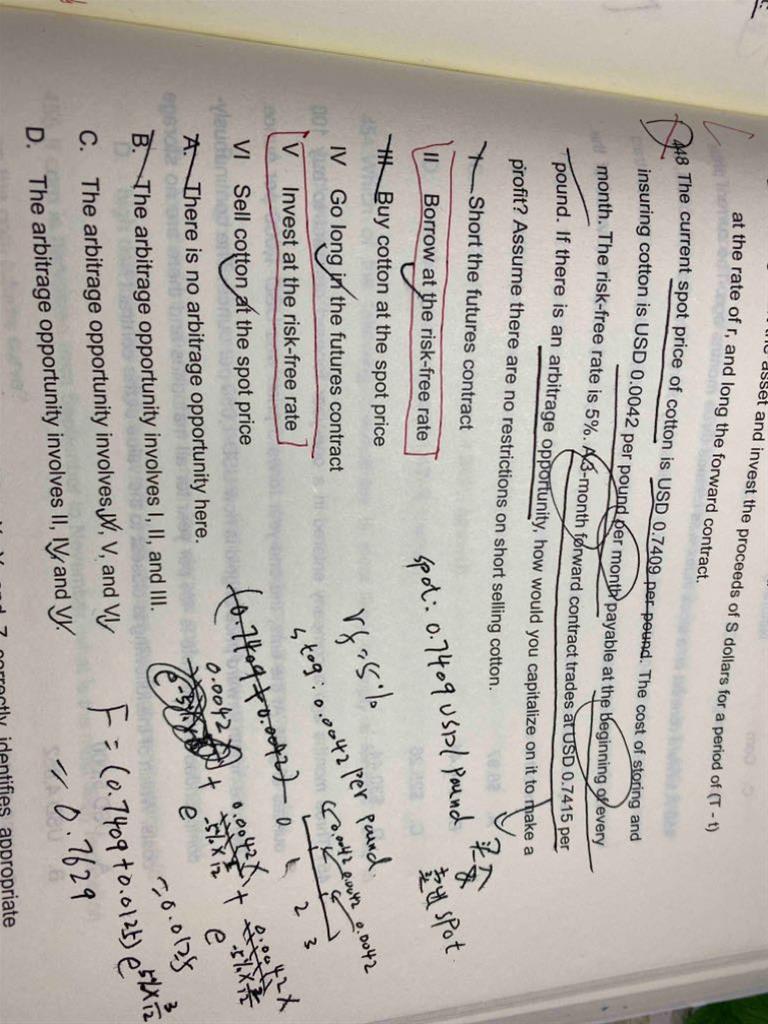 asset and invest the proceeds of S dollars for a period of (T - t)
at the rate of r, and long the forward contract.
448 The current spot price of cotton is USD 0.7409 per pound. The cost of storing and
insuring cotton is USD 0.0042 per pound per month payable at the beginning of every
month. The risk-free rate is 5%. A 3-month forward contract trades at USD 0.7415 per
pound. If there is an arbitrage opportunity, how would you capitalize on it to make a
profit? Assume there are no restrictions on short selling cotton.
I Short the futures contract
II Borrow at the risk-free rate
III Buy cotton at the spot price
IV Go long in the futures contract
V Invest at the risk-free rate
VI Sell cotton at the spot price
A. There is no arbitrage opportunity here.
B. The arbitrage opportunity involves I, II, and III.
C. The arbitrage opportunity involves IV, V, and VI.
D. The arbitrage opportunity involves II, IV, and V.
spot: 0.7409 USD/pound
spot.
rf = 5%
0.0042 per pound
0.0042 0.0042 0.0042
0 1 2 3
(0.7409 + 0.0042)
0.0042 + 0.0042 × e^{-5% × 1/12} + 0.0042 × e^{-5% × 2/12}
= 0.0125
F = (0.7409 + 0.0125) e^{5% × 3/12}
= 0.7629
correctly identifies appropriate